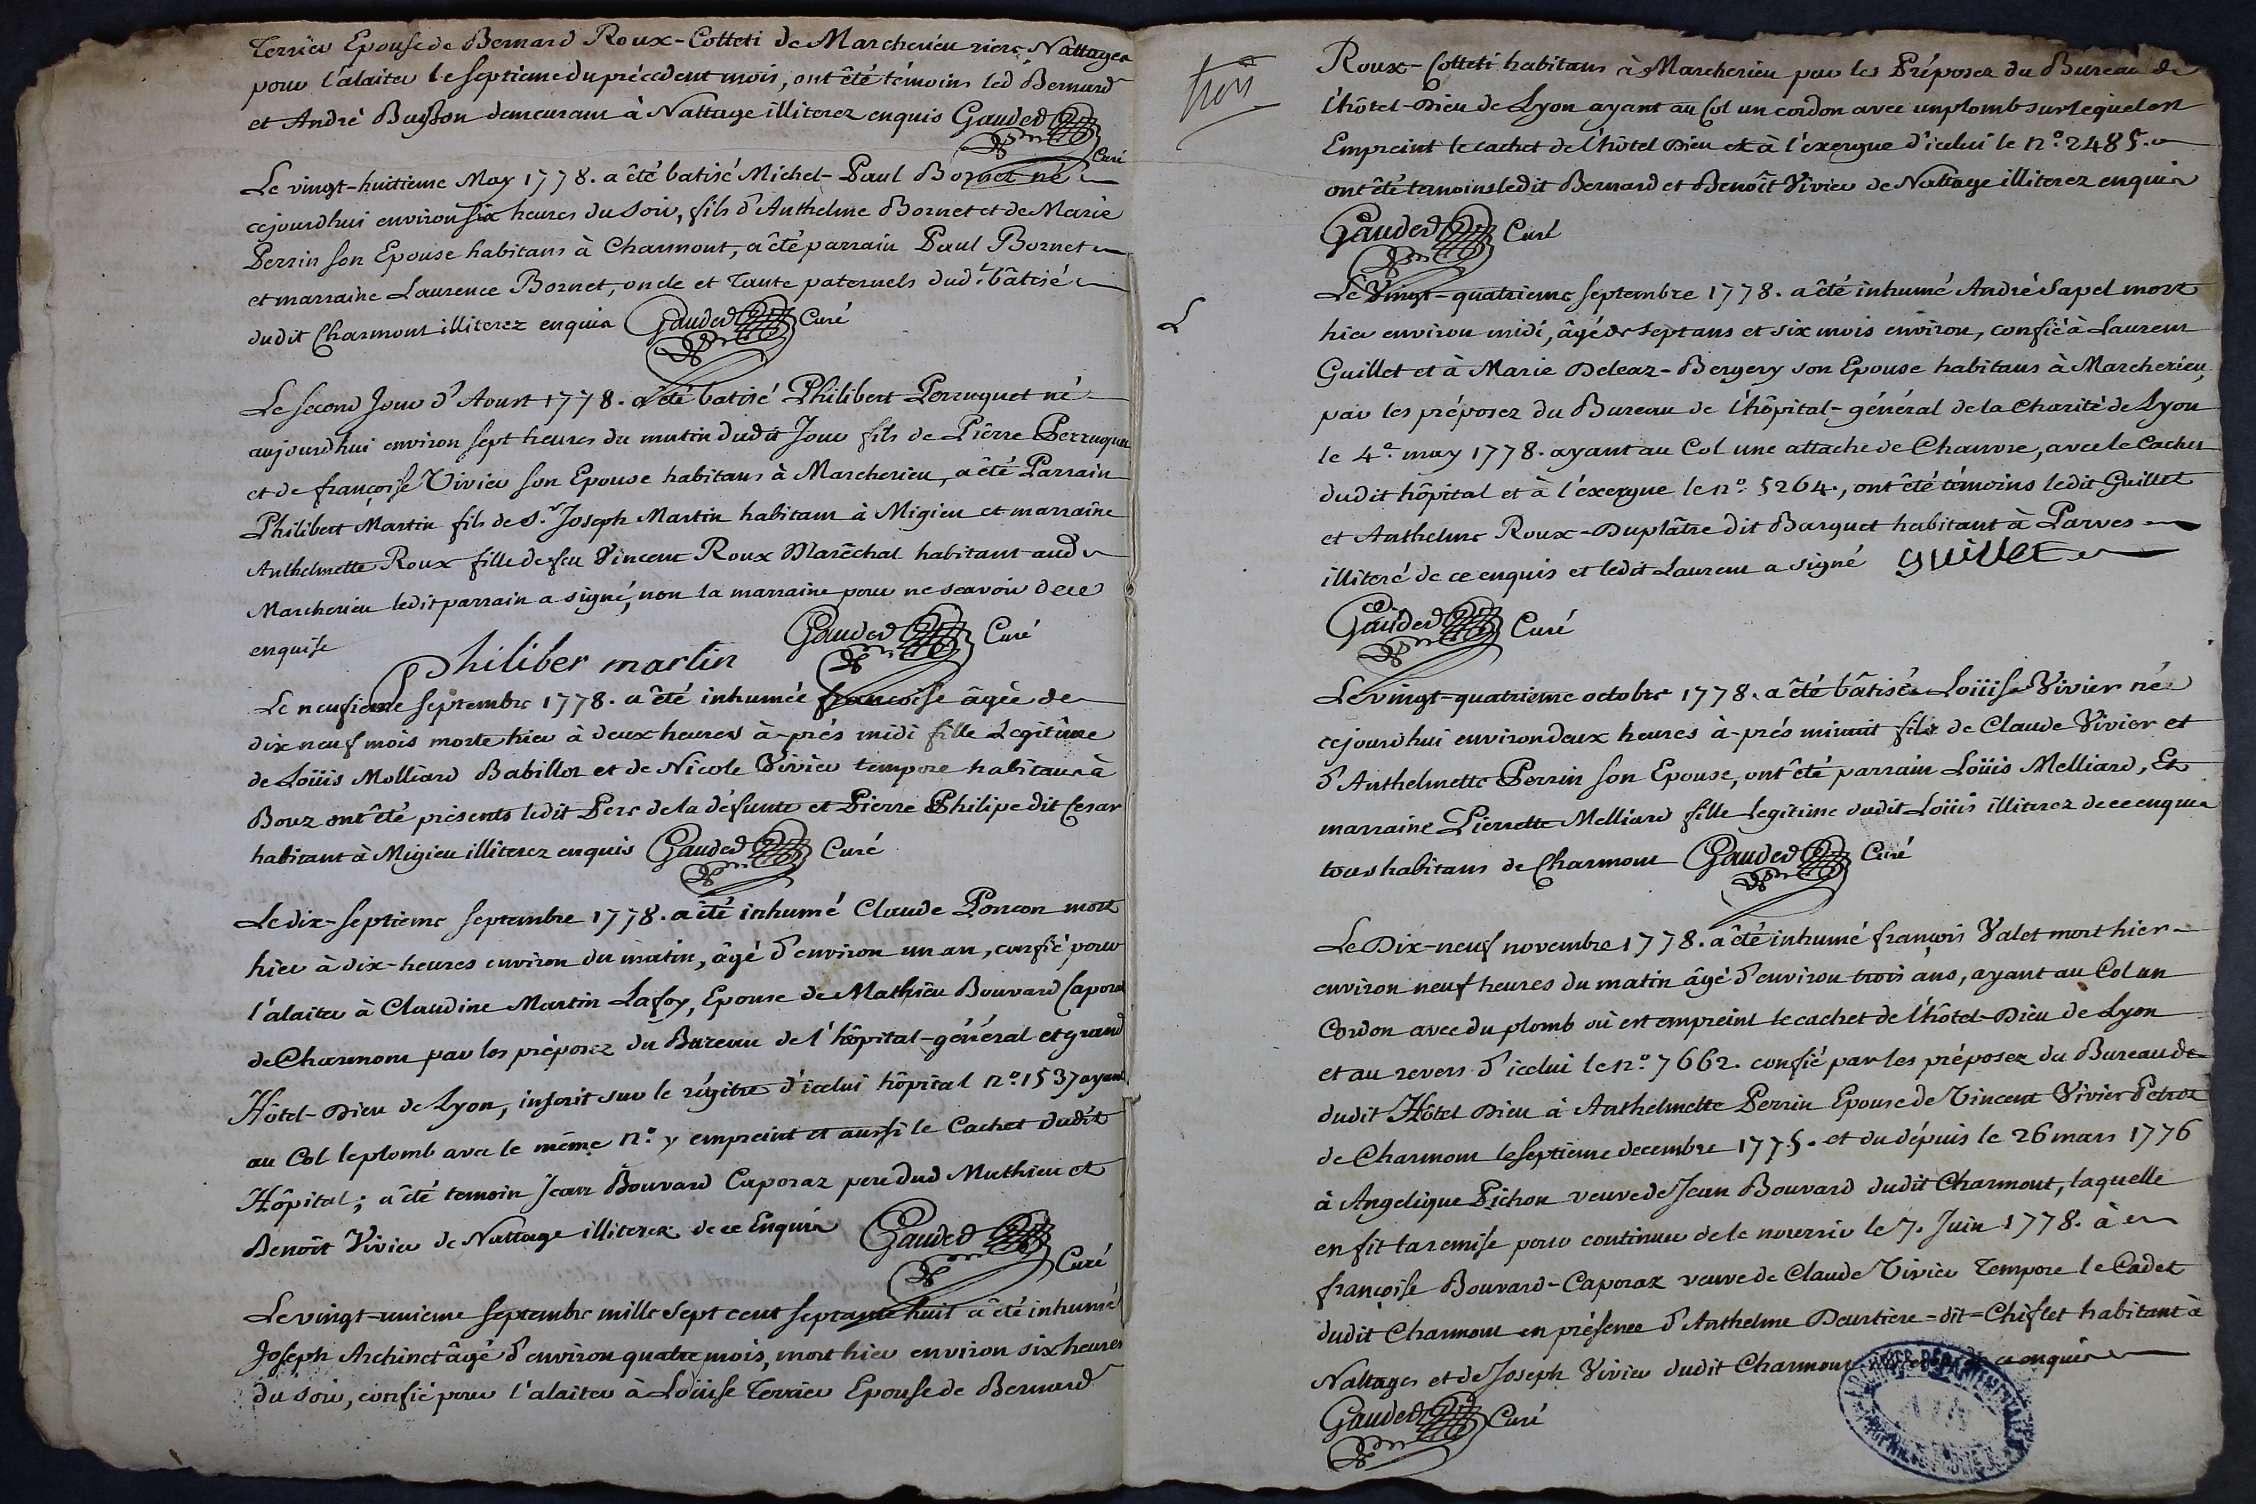 Terrier Epouse de Bernard Roux-Colleti de Marcherieu riere Nattages
pour l'alaiter le septieme du précedent mois, ont été témoins led Bernard
et André Buisson demeurant à Nattage illiterez enquis Gauded
Curé
Le vingt-huitieme May 1778. a été batisé Michel-Paul Bornet né
cejourdhui environ six heures du soir, fils d'Anthelme Bornet et de Marie
Perrin son Epouse habitans à Charmont, a été parrain Paul Bornet
et marraine Laurence Bornet, oncle et Tante paternels dud.t bâtisé
dudit Charmont illiterez enquis Gauded Curé
Le second Jour d'Aoust 1778. a été batisé Philibert Perruquet né
aujourdhui environ sept heures du matin dudit Jour fils de Piêrre Perruquet
et de françoise Vivier son Epouse habitans à Marcherieu, a été Parrain
Philibert Martin fils de S.r Joseph Martin habitant à Migieu et marraine
Anthelmette Roux fille de feu Vincent Roux Maréchal habitant aud
Marcherieu ledit parrain a signé, non la marraine pour ne scavoir de ce
enquise
Philiber martin Gauded Curé
Le neufieme septembre 1778. a été inhumée françoise âgée de
dix neuf mois morte hier à deux heures à-prés midi fille Legitime
de Loüis Molliard Babillot et de Nicole Vivier tempore habitans à
Bouz ont été présents ledit Pere de la défunte et Pierre Philipe dit Cesar
habitant à Migieu illiterez enquis Gauded Curé
Le dix-septieme septembre 1778. a été inhumé Claude Poncon mort
hier à dix-heures environ du matin, âgé d'environ un an, confié pour
l'alaiter à Claudine Martin Lafoy, Epouse de Mathieu Bouvard Caporal
de Charmont par les préposez du Bureau de l'hôpital-général et grand
Hôtel-Dieu de Lyon, inscrit sur le régitre d'icelui hôpital n.o 1537 ayant
au Col le plomb avec le même n.o y empreint et aussi le Cachet dudit
Hôpital; a été temoin Jean Bouvard Caporaz pere dud Mathieu et
Benoît Vivier de Nattage illiterez de ce Enquis Gauded
Curé
Le vingt-unieme septembre mille sept cent septante huit a été inhumé
Joseph Archinet âgé d'environ quatre mois, mort hier environ six heures
du soir, confié pour l'alaiter à Loüise Terrier Epouse de Bernard
trois
Roux-Colleti habitans à Marcherieu par les Préposez du Bureau de
l'hôtel-Dieu de Lyon ayant au Col un cordon avec un plomb sur lequel est
Empreint le cachet de l'hôtel Dieu et à l'exergue d'icelui le n.o 2485.
ont été temoins ledit Bernard et Benoît Vivier de Nattage illiterez enquis
Gauded Curé
L
Le Vingt-quatrieme septembre 1778. a été inhumé André Sapel mort
hier environ midi, âgé de sept ans et six mois environ, confié à Laurent
Guillet et à Marie Deleaz-Bergery son Epouse habitans à Marcherieu,
par les préposez du Bureau de l'hôpital-général de la Charité de Lyon
le 4.e may 1778. ayant au Col une attache de Chanvre, avec le Cachet
dudit hôpital et à l'exergue le n.o 5264., ont été témoins ledit Guillet
et Anthelme Roux-Duplâtre dit Barquet habitant à Parves
illiteré de ce enquis et ledit Laurent a signé guillet
Gauded Curé
Le vingt-quatrieme octobre 1778. a été bâtisée Loüise Vivier né
cejourdhui environ deux heures à-prés minuit fille de Claude Vivier et
d'Anthelmette Perrin son Epouse, ont été parrain Loüis Melliard, Et
marraine Pierrette Melliard fille Legitime dudit Loüis illiterez de ce enquis
tous habitans de Charmont Gauded Curé
Le Dix-neuf novembre 1778. a été inhumé françois Valet mort hier
environ neuf heures du matin âgé d'environ trois ans, ayant au Col un
Cordon avec du plomb où est empreint le cachet de l'hôtel-Dieu de Lyon
et au revers d'icelui le n.o 7662. confié par les préposez du Bureau de
dudit Hôtel Dieu à Anthelmette Perrin Epouse de Vincent Vivier Petroz
de Charmont le septieme decembre 1775. et du dépuis le 26 mars 1776
à Angelique Pichon veuve de Jean Bouvard dudit Charmont, laquelle
en fit la remise pour continuer de le nourrir le 7. Juin 1778. à
françoise Bouvard-Caporaz veuve de Claude Vivier Tempore le Cadet
dudit Charmont en présence d'Anthelme Deurtiere-dit-Chiflet habitant à
Nattages et de Joseph Vivier dudit Charmont ce enquis
Gauded Curé